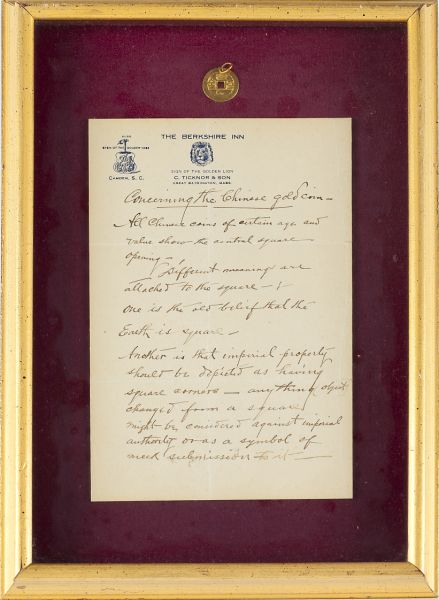 THE BERKSHIRE INN
SIGN OF THE GOLDEN LION
C. TICKNOR & SON
GREAT BARRINGTON, MASS.
CAMDEN, S. C.
Concerning the Chinese gold coin –
All Chinese coins of certain age and
value show the central square
opening –
Different meaning are
attached to the square – :
one is the old belief that the
Earth is square –
Another is that imperial property
should be depicted as having
square corners – anything object
changed from a square
might be considered against imperial
authority or as a symbol of
meek submission to it –